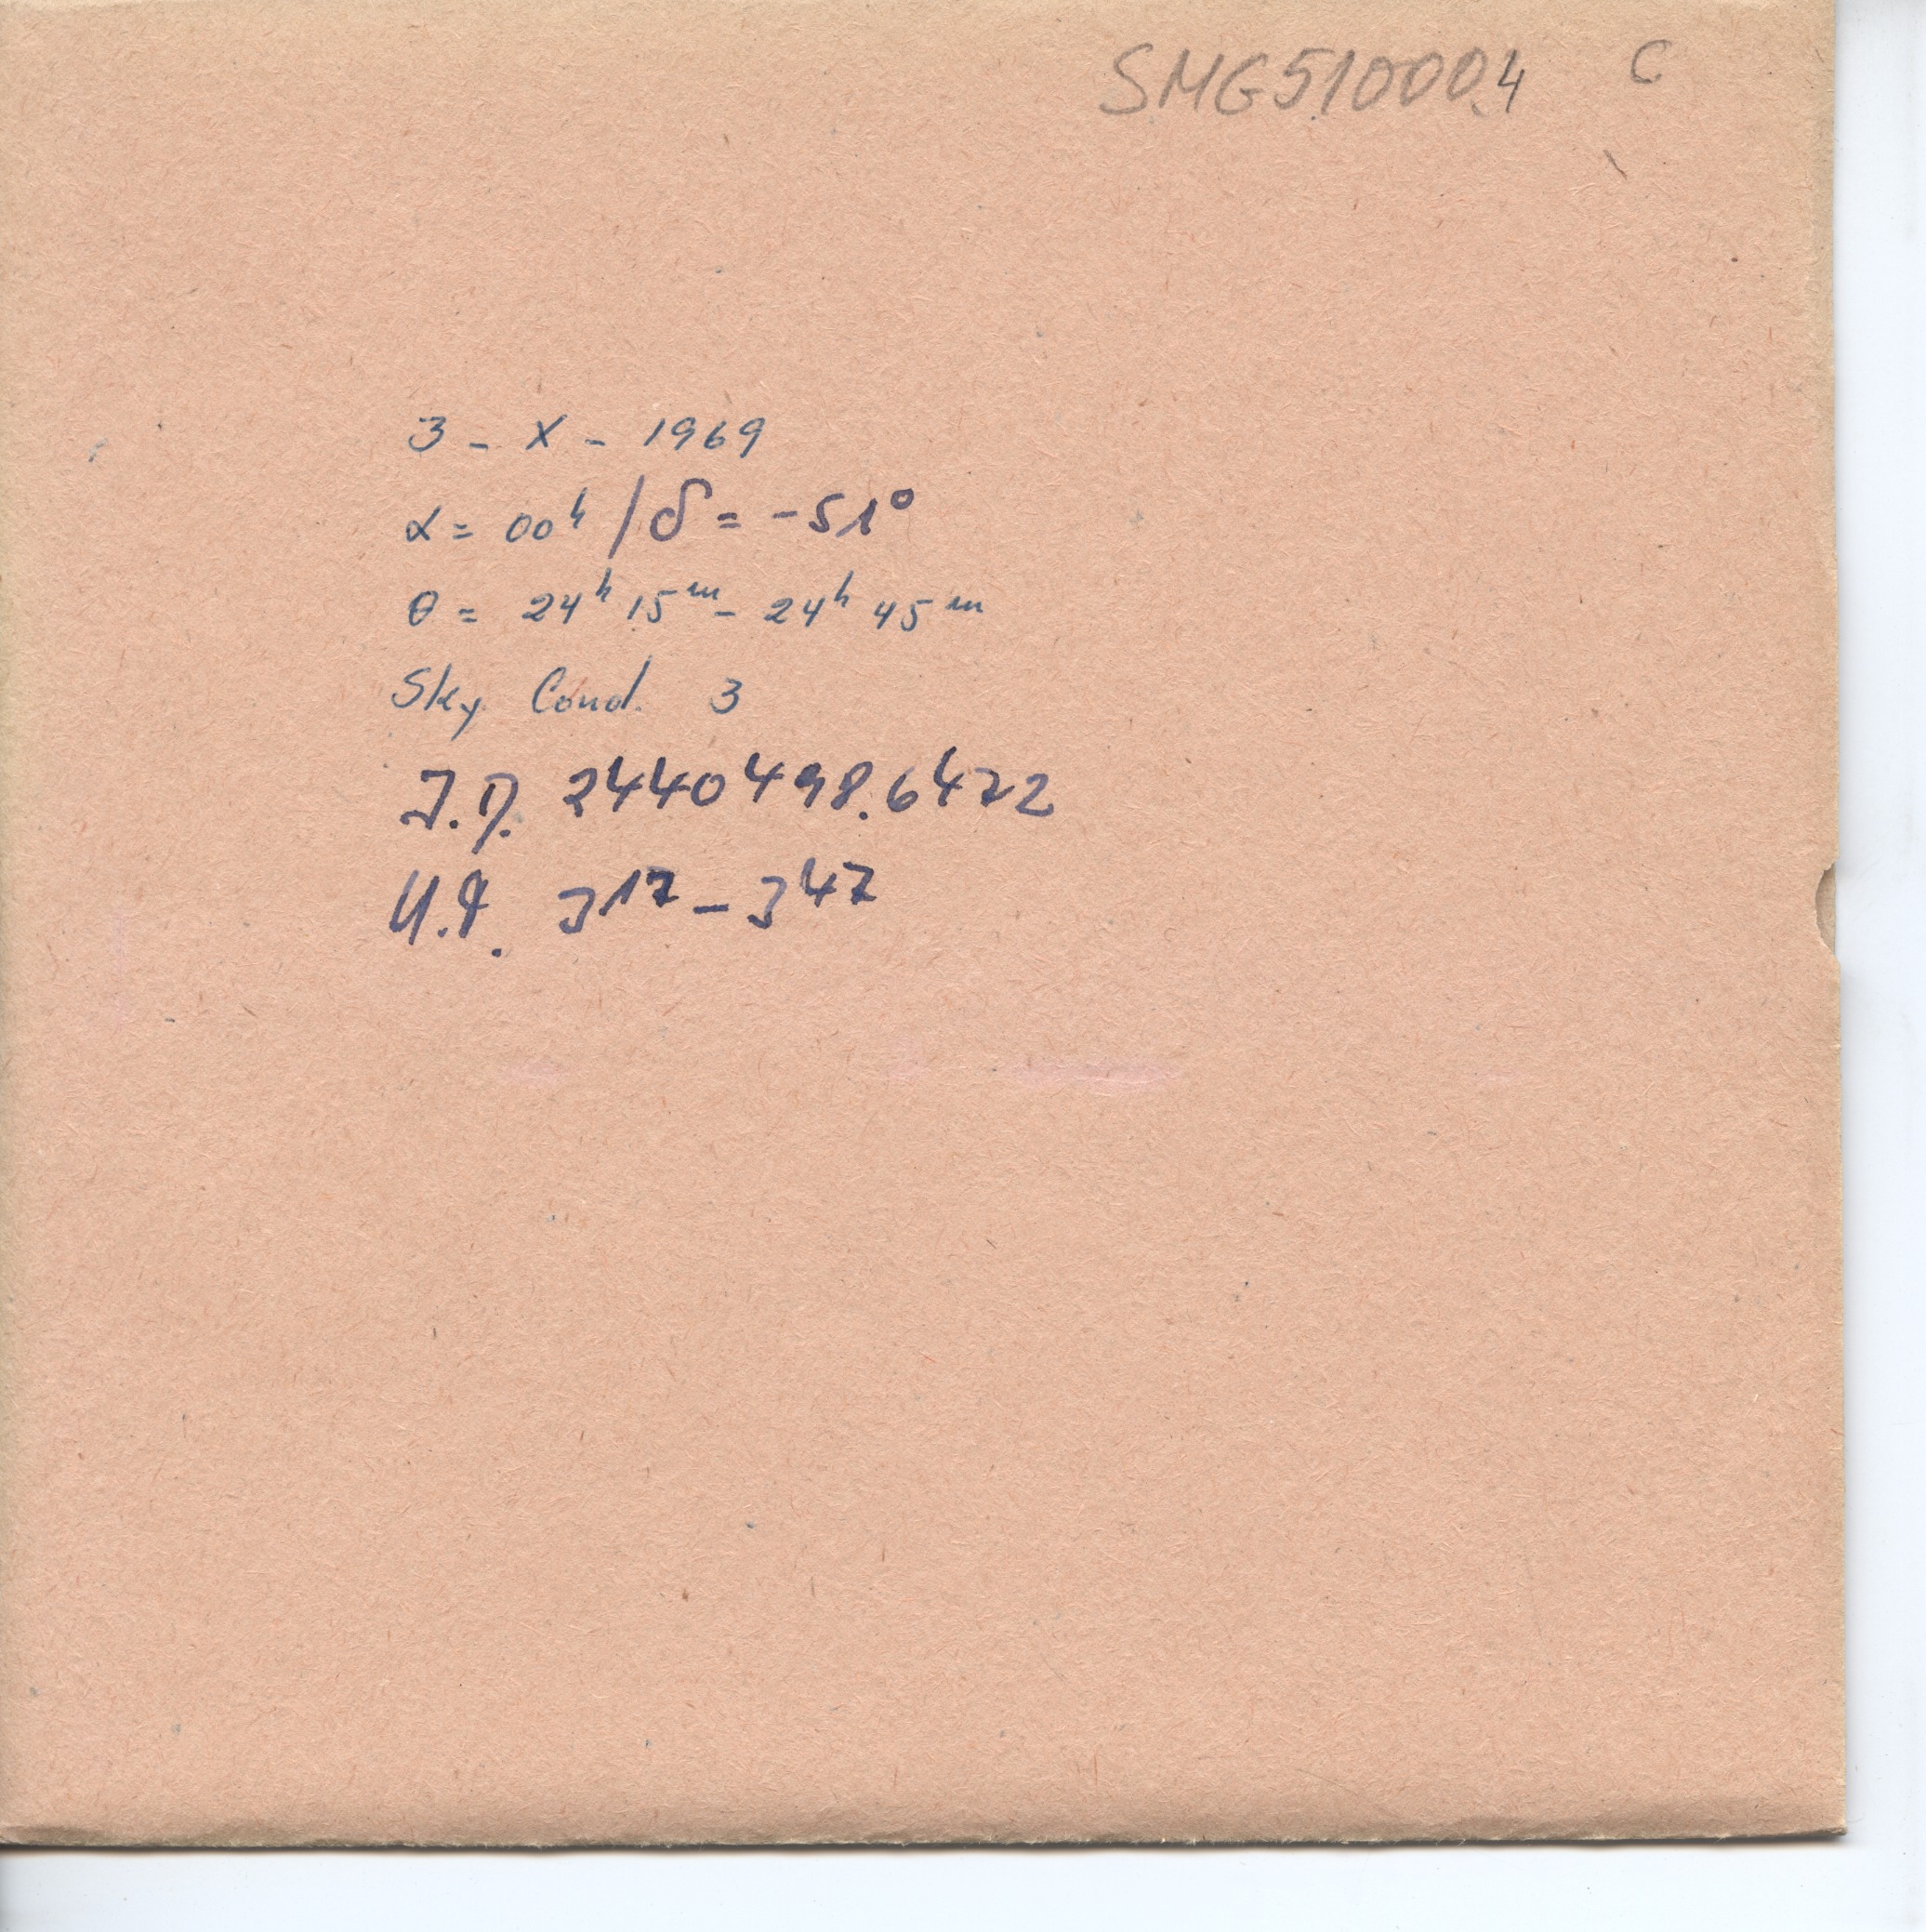 SMG510004 C
3 - X - 1969
α = 00ʰ / δ = -51°
θ = 24ʰ 15ᵐ - 24ʰ 45ᵐ
Sky Cond. 3
J.D. 2440498.6472
U.T. 3¹⁷ - 3⁴⁷